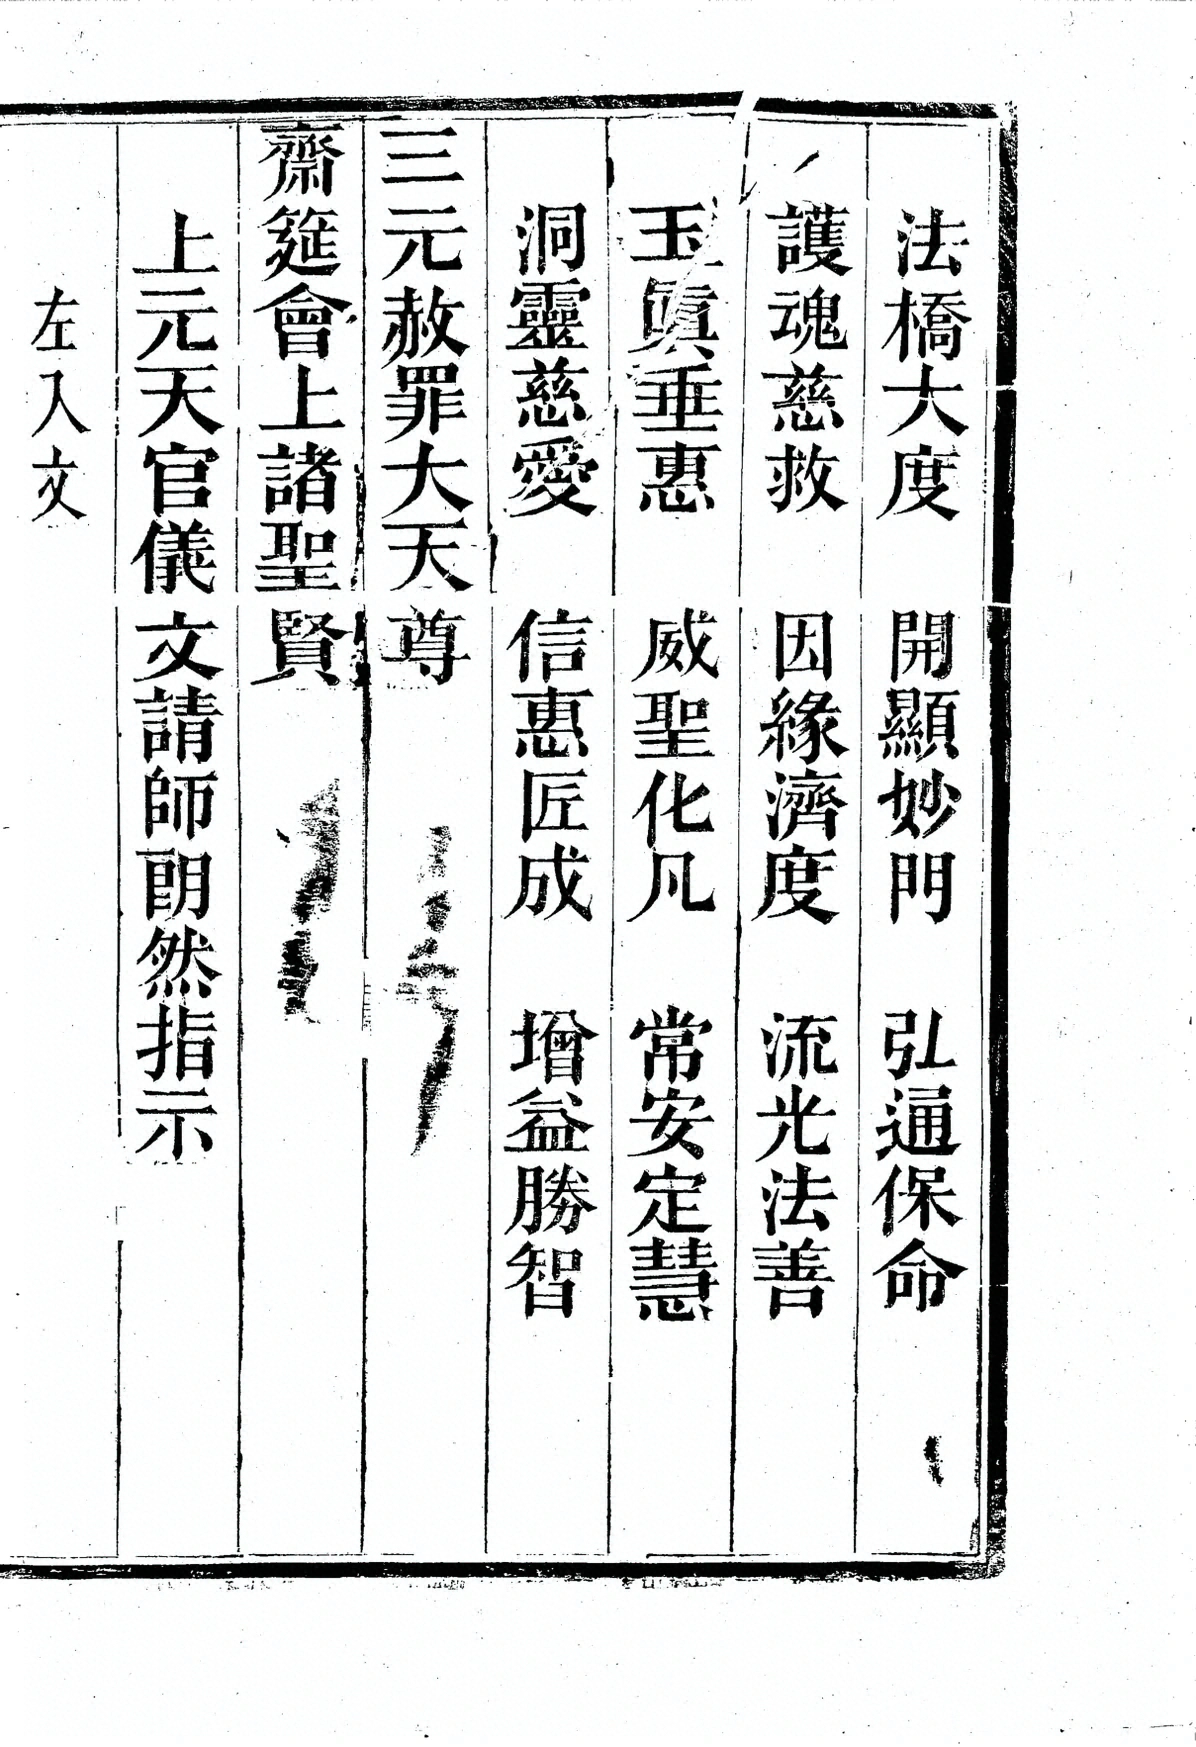 法橋大度　開顯妙門　弘通保命
護魂慈救　因緣濟度　流光法善
玉眞垂惠　威聖化凡　常安定慧
洞靈慈愛　信惠匠成　增益勝智
三元赦罪大天尊
齋筵會上諸聖賢
上元天官儀文請師朗然指示
左入文